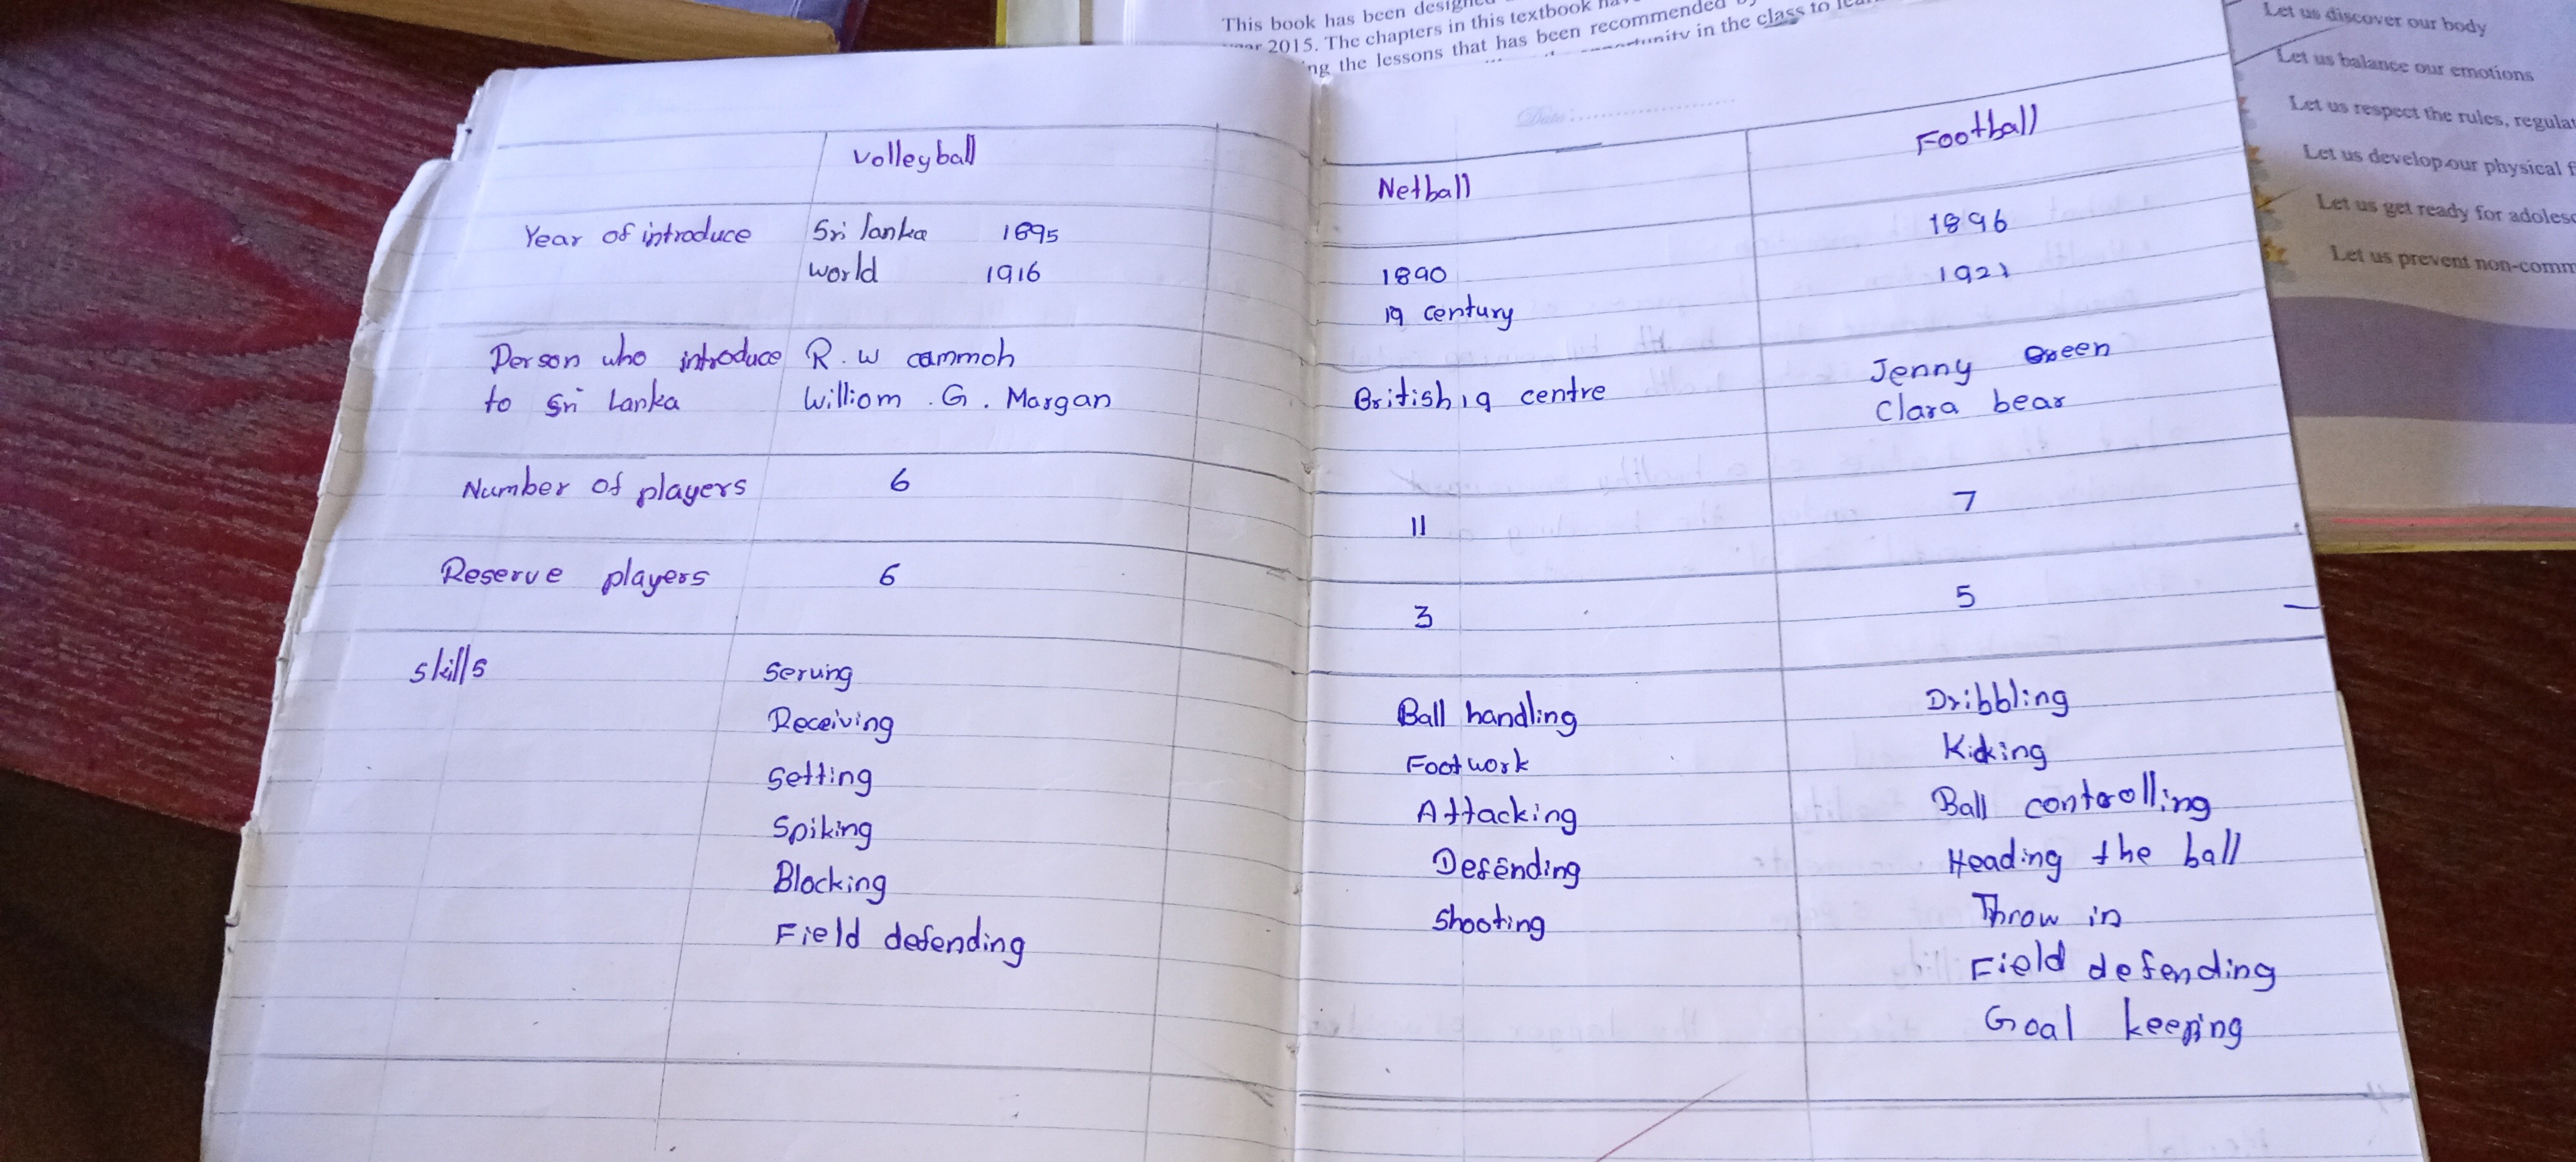 This book has been
2015. The chapters in this textbook
ng the lessons that has been recommended
in the class to
Let us discover our body
Let us balance our emotions
Let us respect the rules, regula
Let us develop our physical f
Let us get ready for adolesc
Let us prevent non-comm
Date
Volleyball
Netball
Football
Year of introduce
Sri lanka 1895
world 1916
1890
19 century
1896
1921
Person who introduce
to Sri Lanka
R. W cammoh
Williom . G. Margan
British 19 centre
Jenny Green
Clara bear
Number of players
6
11
7
Reserve players
6
3
5
Skills
Serving
Receiving
Setting
Spiking
Blocking
Field defending
Ball handling
Footwork
Attacking
Defending
Shooting
Dribbling
Kicking
Ball controlling
Heading the ball
Throw in
Field defending
Goal keeping